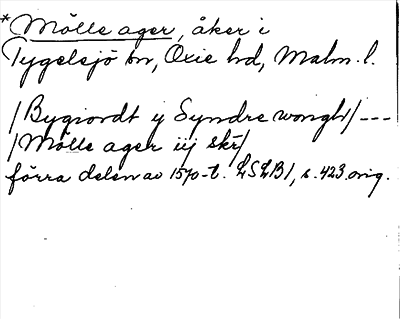 *Mölle ager, åker i
Tygelsjö sn, Oxie hd, Malm. l.
/Bygiordt ij Syndre wongh/---
/Mölle ager iij skr/
förra delen av 1570-t. LSLB1, s. 423. orig.